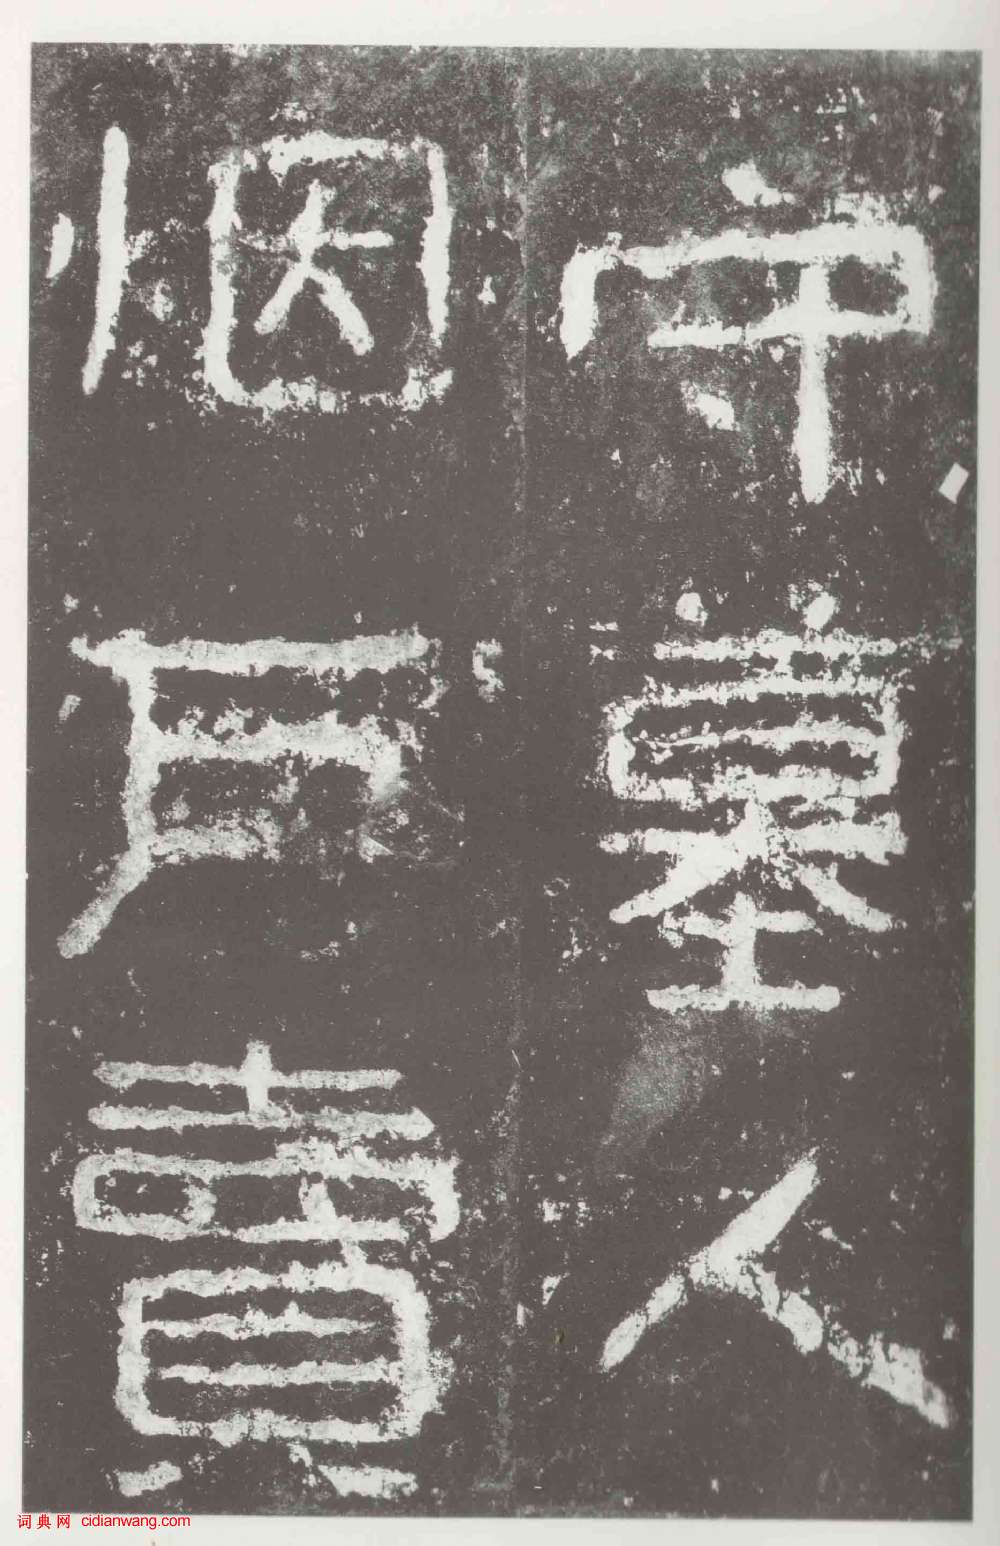 守墓人
烟戶賣
词典网 cidianwang.com